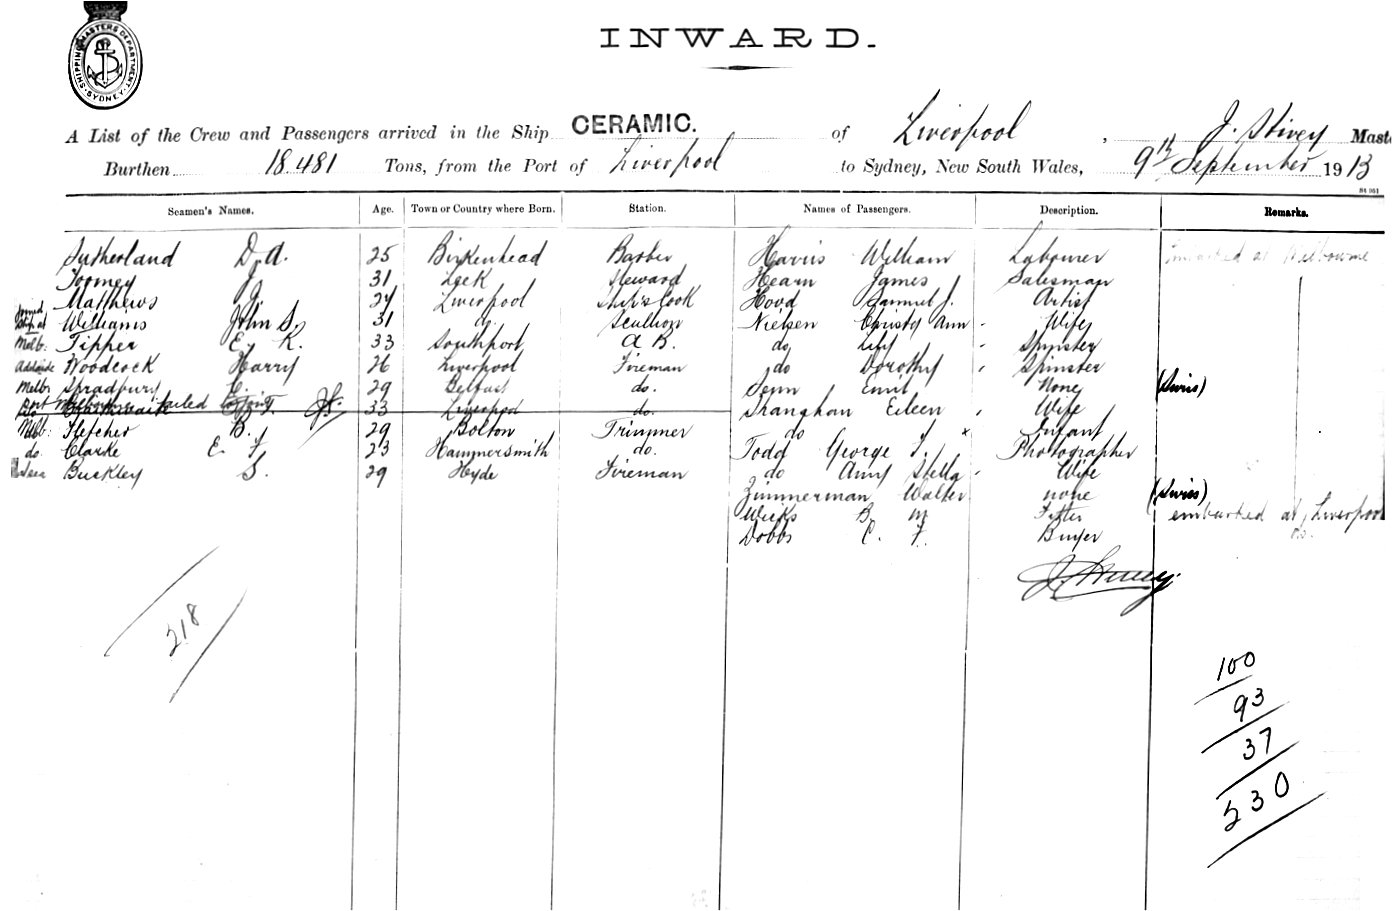 SHIPPING MASTERS DEPARTMENT SYDNEY
INWARD.
A List of the Crew and Passengers arrived in the Ship CERAMIC. of Liverpool , J. Stivey Mast
Burthen 18.481 Tons, from the Port of Liverpool to Sydney, New South Wales, 9th September 1913
Seamen's Names. Age. Town or Country where Born. Station. Names of Passengers. Description. Remarks.
Sutherland D. A. 25 Birkenhead Barber Harris William Labourer Embarked at Melbourne
Toomey J. 31 Leek Steward Hearn James Salesman
Matthews J. 24 Liverpool Cook Hood Samuel J. Artist
Joined Ship at Williams John S. 31 do. Scullion Nielsen Christy Ann Wife
Melb: Tipper E. K. 33 Southport A B. do Lily Spinster
Adelaide Woodcock Harry 26 Liverpool Fireman do Dorothy Spinster
Melb: Spradbury C. 29 Belfast do. Senn Emil None (Swiss)
failed to join 33 Liverpool do. Shanahan Eileen Wife
Melb: Fletcher B. 29 Bolton Trimmer do Infant
do. Clarke E. F. 23 Hammersmith do. Todd George F. x Photographer
Buckley S. 29 Hyde Fireman do Amy Stella Wife
Zimmerman Walter none (Swiss)
Wicks B. M Fitter embarked at Liverpool
Dobbs C. F. Buyer do.
J. Stivey
218
100
93
37
230